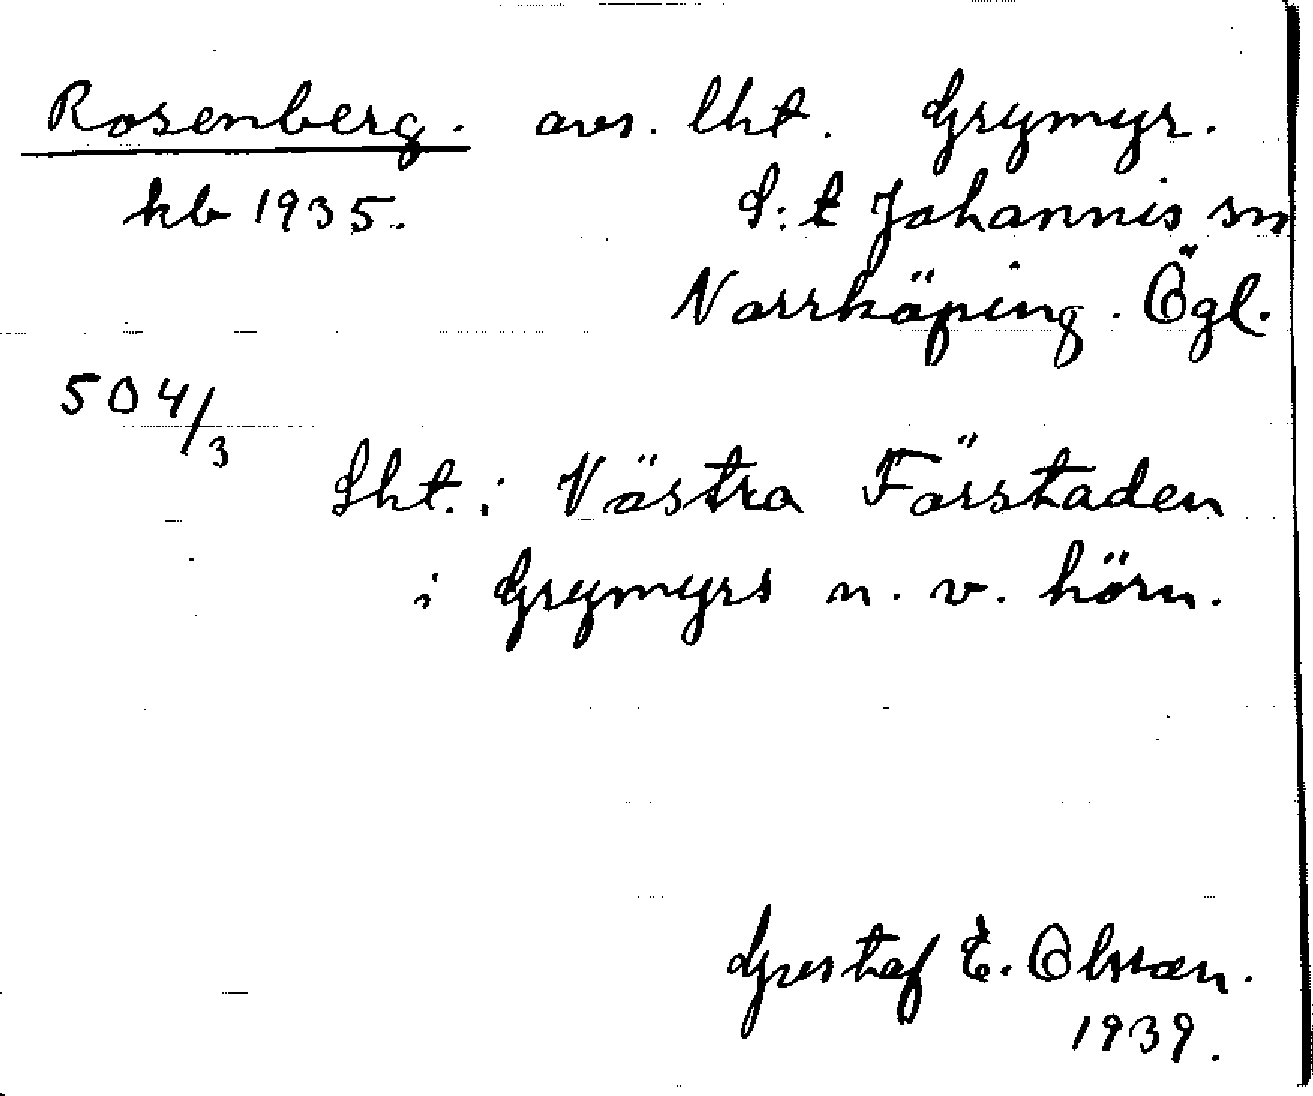 Rosenberg. avs. lht. Grymyr.
kb 1935. S:t Johannis sn
Norrköping. Ögl.
504/3
Lht. i Västra Förstaden
i Grymyrs n. v. hörn.
Gustaf E. Olsson.
1939.